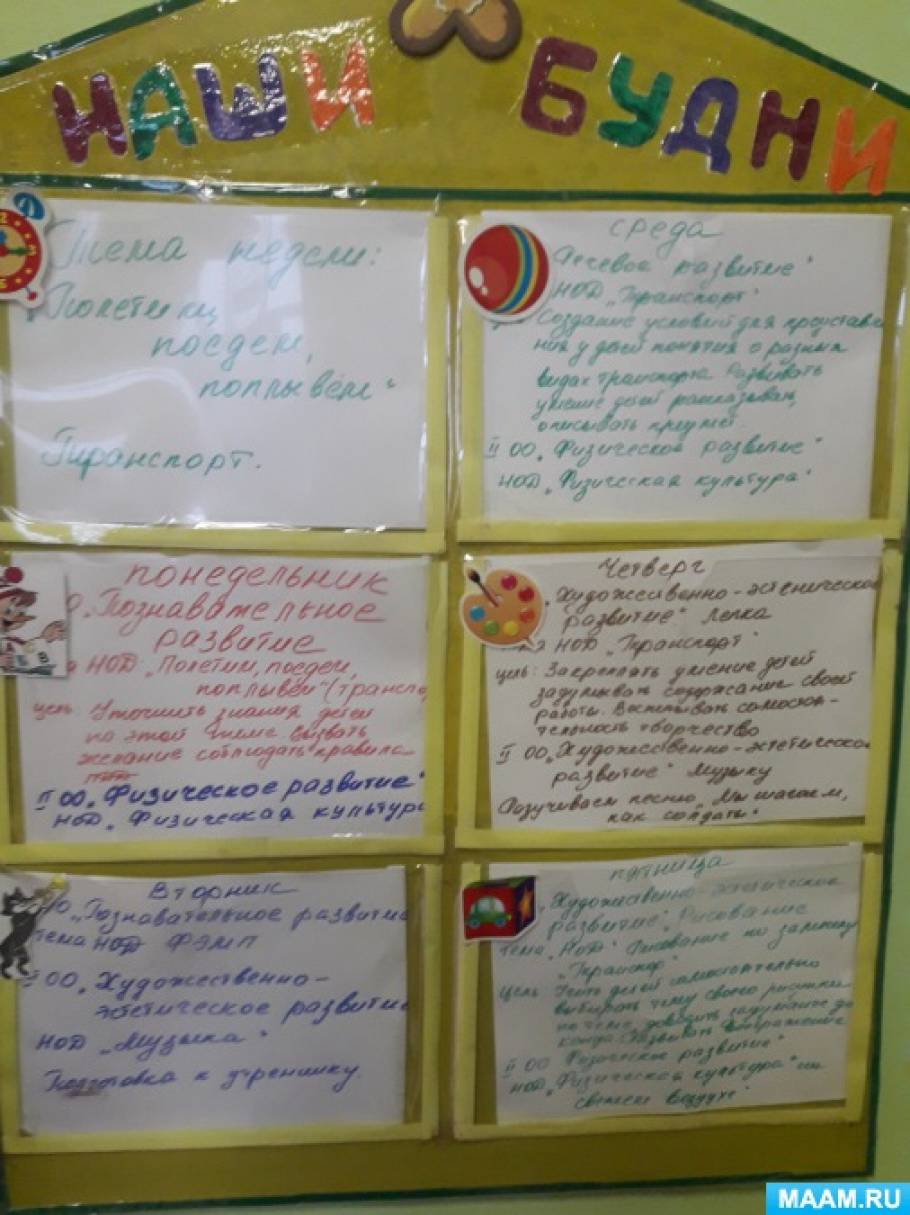 НАШИ БУДНИ
Тема недели:
"Полетим,
поедем,
поплывём"
Транспорт.
ПОНЕДЕЛЬНИК
О. Познавательное
развитие
НОД "Полетим, поедем,
поплывём" (транспо
цель: Уточнить знания детей
по этой теме. Вызвать
желание соблюдать правила
II ОО "Физическое развитие"
НОД "Физическая культура
Вторник
О "Познавательное развитие
тема НОД ФЭМП
II ОО "Художественно-
эстетическое развитие
НОД "Музыка"
Подготовка к утреннику.
СРЕДА
Речевое развитие"
НОД "Транспорт"
Создание условий для представле
ния у детей понятия о разных
видах транспорта. Развивать
умение детей рассказывать,
описывать предмет.
II ОО "Физическое развитие"
НОД "Физическая культура"
Четверг
Художественно-эстетическое
развитие" Лепка
НОД "Транспорт"
цель: Закреплять умение детей
задумывать содержание своей
работы. Воспитывать самостоя-
тельность творчество
II ОО "Художественно-эстетическое
развитие" Музыку
Разучиваем песню "Мы шагаем,
как солдаты"
пятница
"Художественно-эстетическое
развитие" Рисование
тема НОД: Рисование по замыслу
"Транспорт"
цель: Учить детей самостоятельно
выбирать тему своего рисунка
по теме, доводить задуманное до
конца. Развивать воображение
II ОО Физическое развитие"
НОД "Физическая культура" на
свежем воздухе"
MAAM.RU